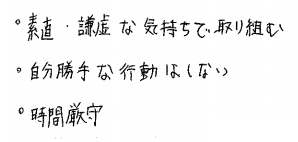 °素直・謙虚な気持ちで取り組む
°自分勝手な行動はしない
°時間厳守